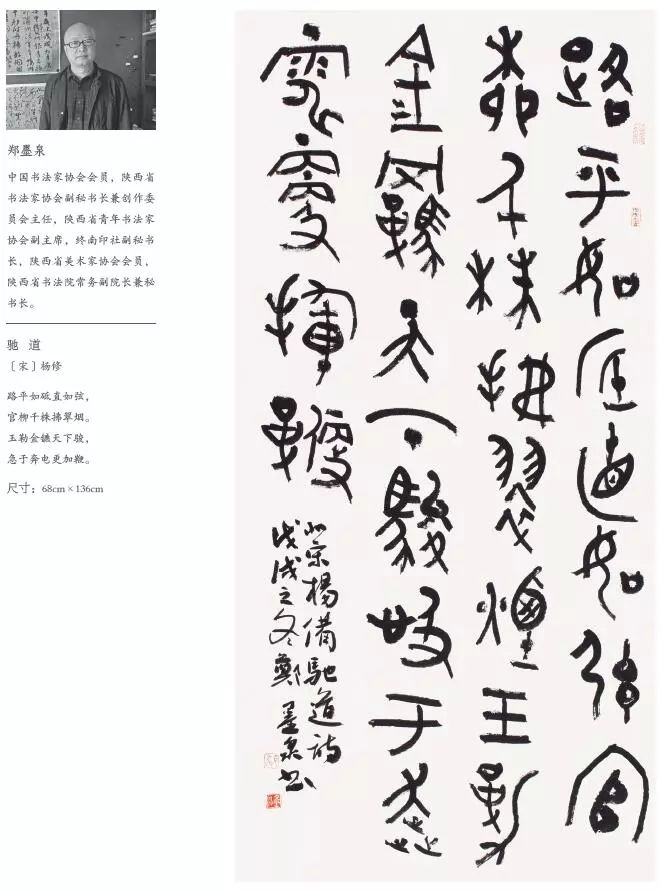 郑墨泉
中国书法家协会会员，陕西省
书法家协会副秘书长兼创作委
员会主任，陕西省青年书法家
协会副主席，终南印社副秘书
长，陕西省美术家协会会员，
陕西省书法院常务副院长兼秘
书长。
驰 道
〔宋〕杨修
路平如砥直如弦，
官柳千株拂翠烟。
玉勒金镳天下骏，
急于奔电更加鞭。
尺寸：68cm×136cm
路平如砥直如弦官
柳千株拂翠煙玉勒
金鑣天下駿急于奔
電更揮鞭
北宋楊備馳道詩
戊戌之冬鄭墨泉书